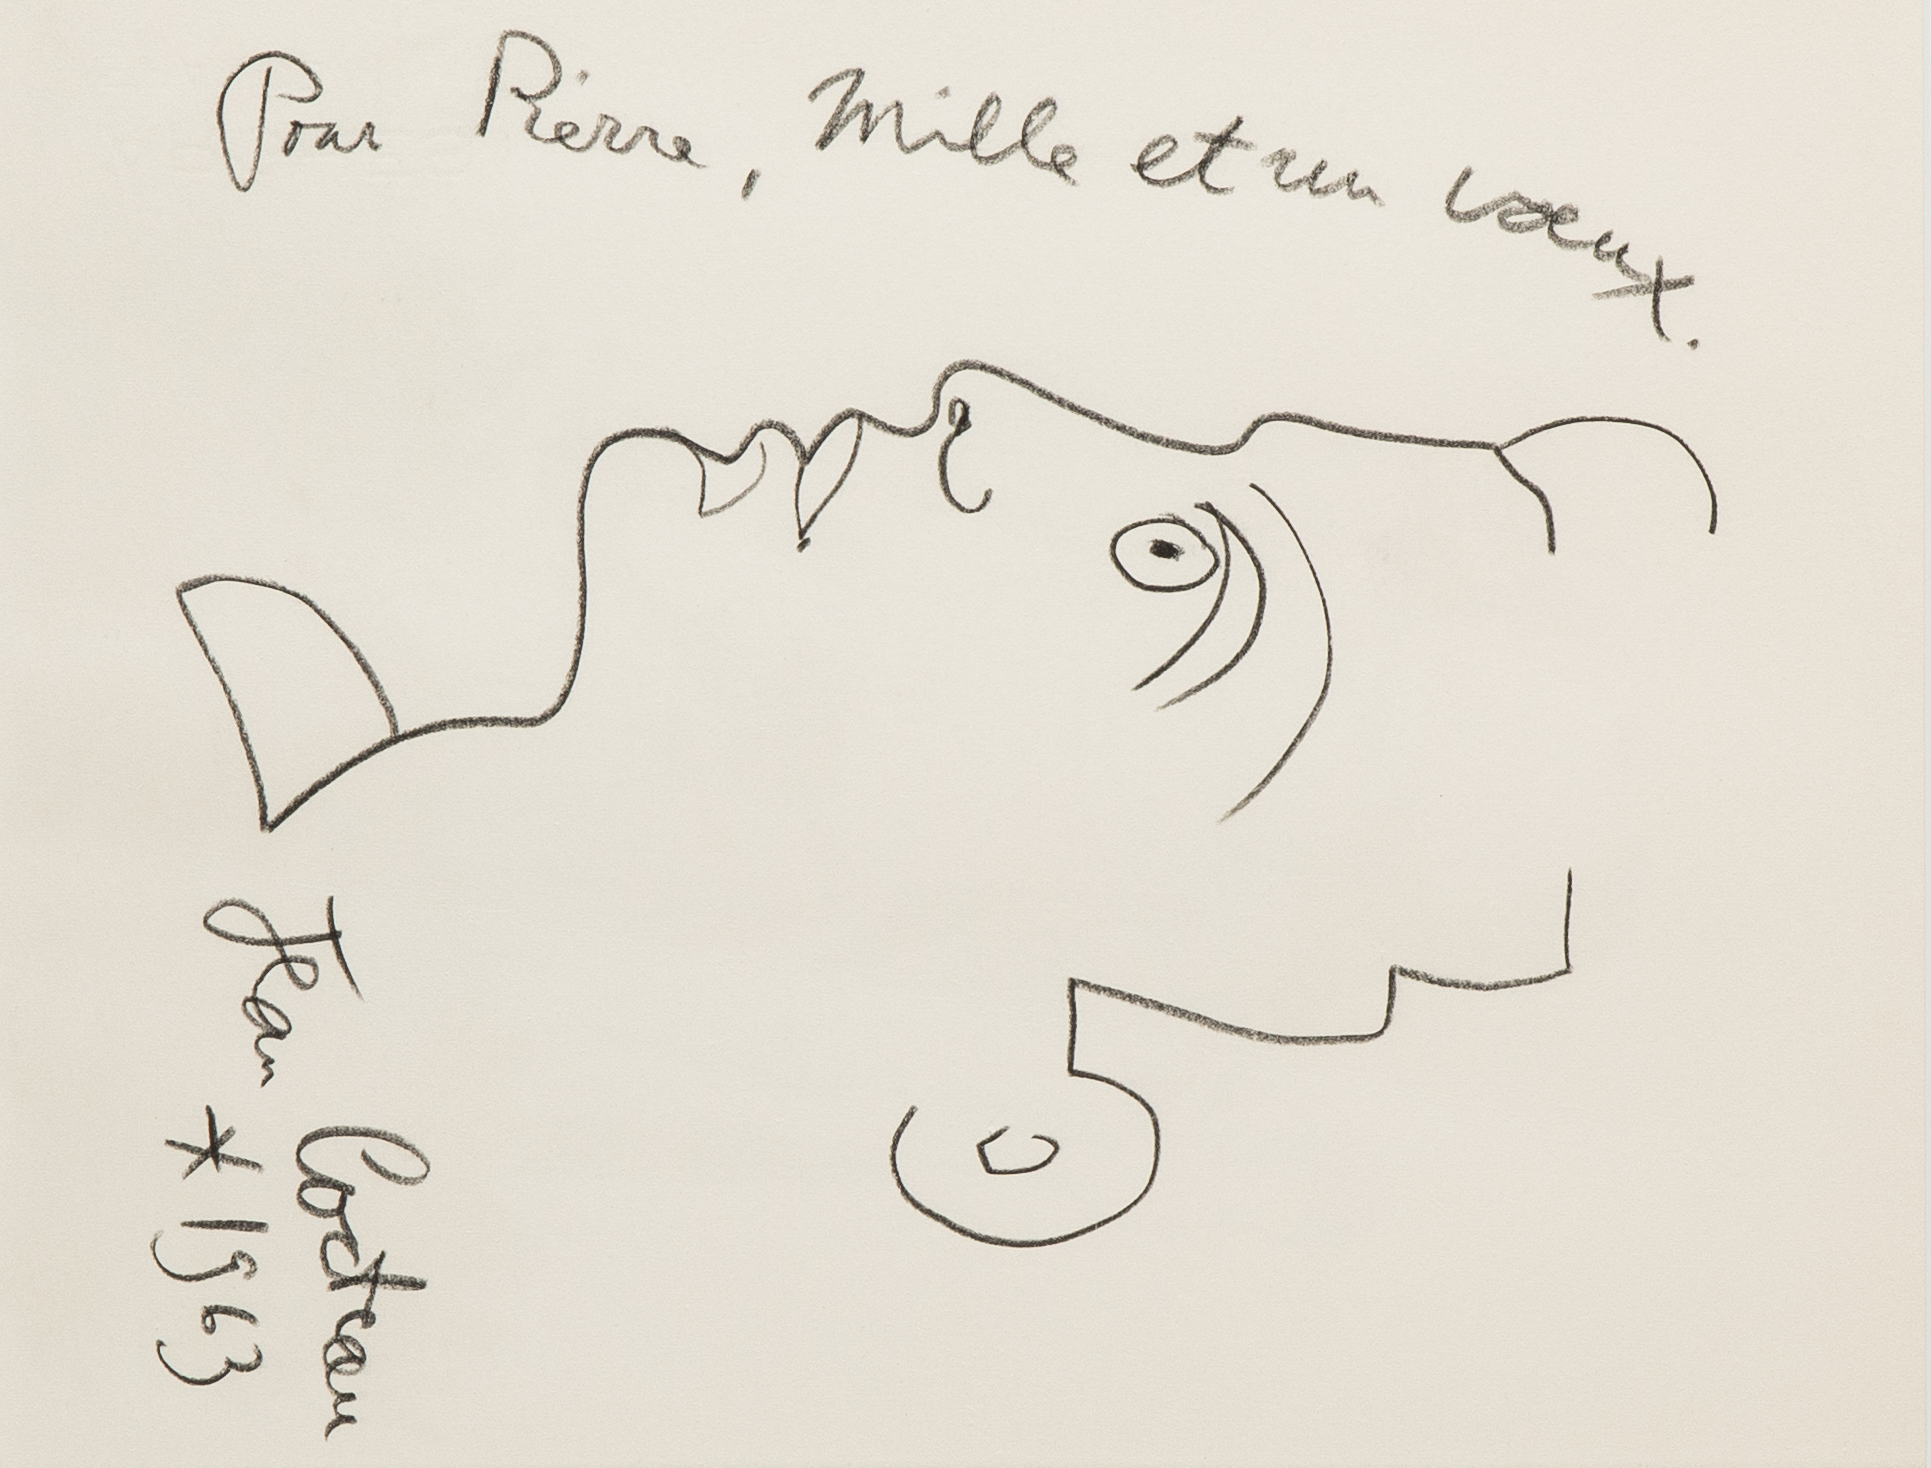 Pour Pierre, Mille et un vœux.
Jean Cocteau
* 1963